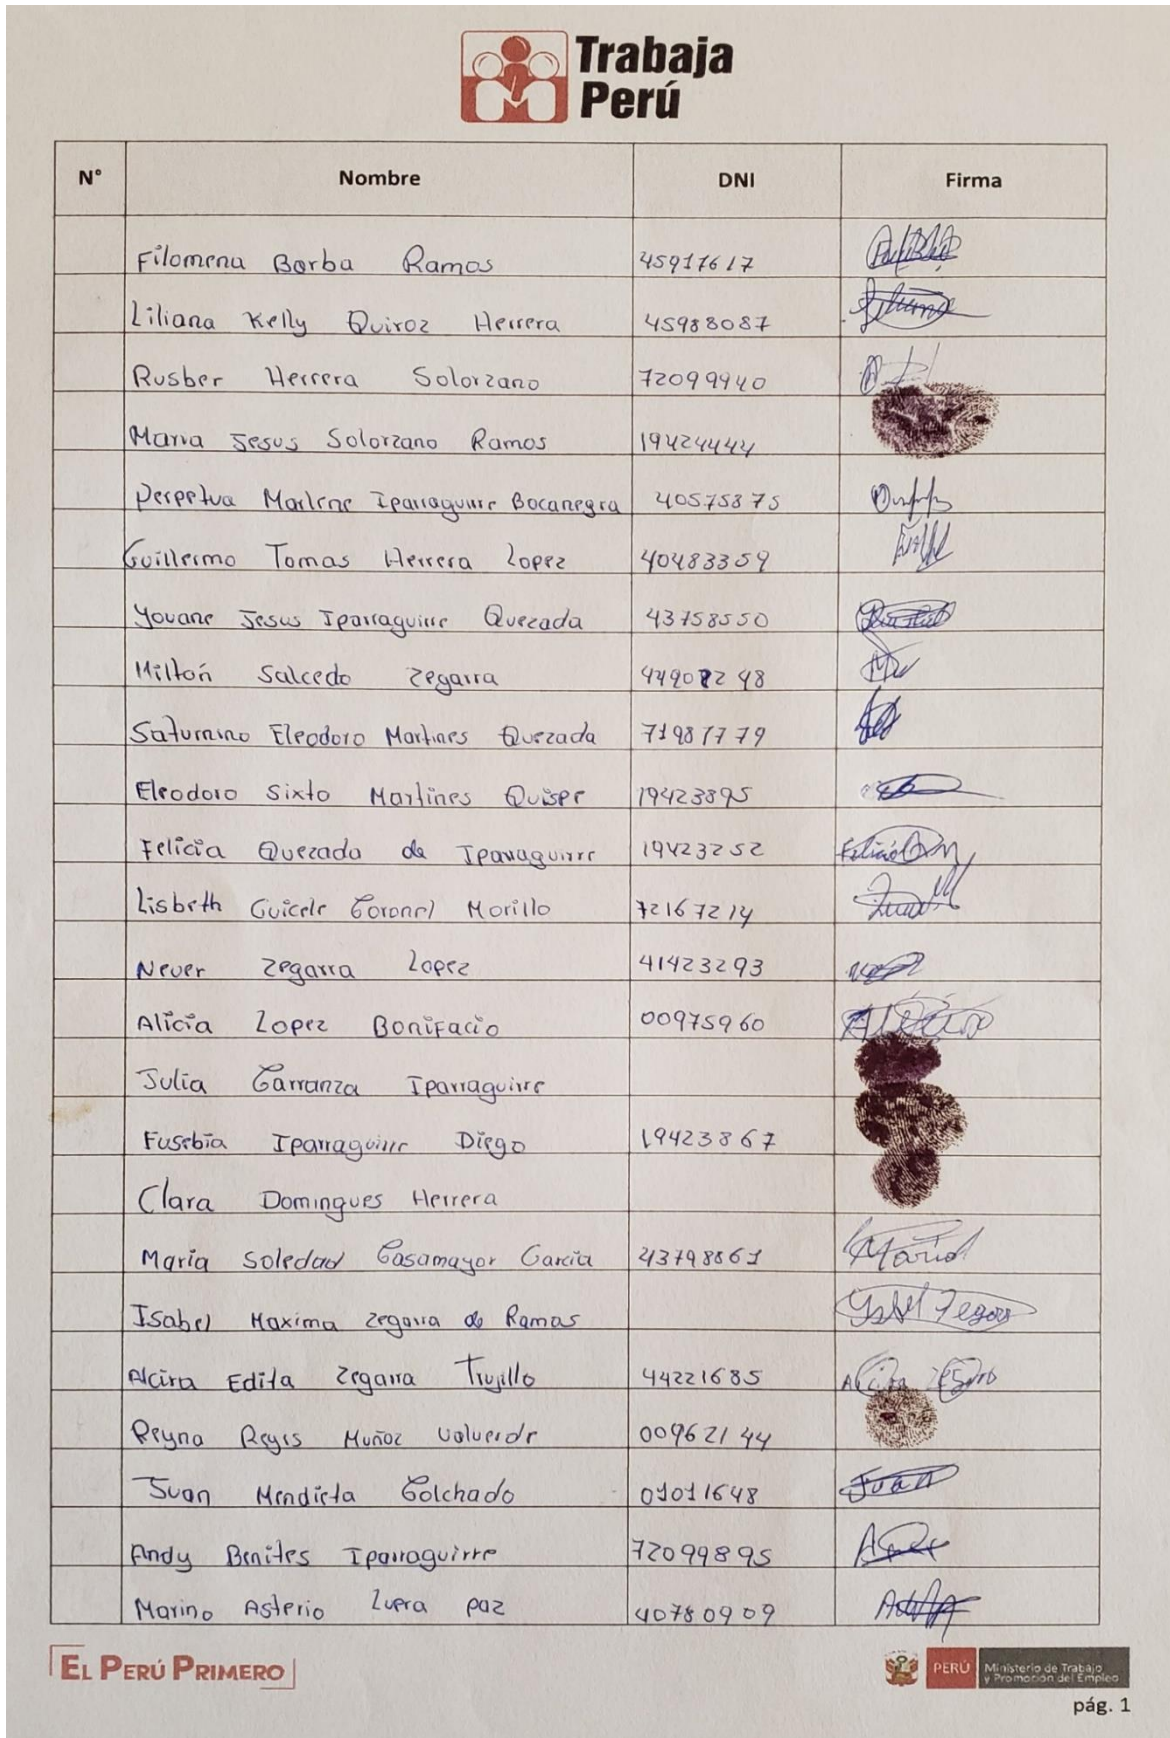 Trabaja
Perú
N° Nombre DNI Firma
Filomena Borba Ramos 45917617
Liliana Kelly Quiroz Herrera 45988087
Rusber Herrera Solorzano 72099940
Maria Jesus Solorzano Ramos 19424444
Perpetua Marlene Iparraguirre Bocanegra 40575875
Guillermo Tomas Herrera Lopez 40483359
Yovane Jesus Iparraguirre Quezada 43758550
Miltón Salcedo Zegarra
Saturnino Eleodoro Martines Quezada 71987779
Eleodoro Sixto Martines Quispe 19423895
Felicia Quezada de Iparraguirre 19423252 Felicia
Lisbeth Guicele Coronel Morillo 72167214
Never Zegarra Lopez 41423293
Alicia Lopez Bonifacio 00975960
Julia Carranza Iparraguirre
Eusebia Iparraguirre Diego 19423867
Clara Domingues Herrera
Maria Soledad Casamayor Garcia 43798861
Isabel Maxima Zegarra de Ramos
Alcira Edita Zegarra Trujillo 44221685 Alcira
Reyna Reyes Muñoz Valverde 00962144
Juan Mendieta Colchado 01011648 Juan
Andy Benites Iparraguirre 72099895
Marino Asterio Lupra paz 40780909
EL PERÚ PRIMERO
PERÚ Ministerio de Trabajo
y Promoción del Empleo
pág. 1